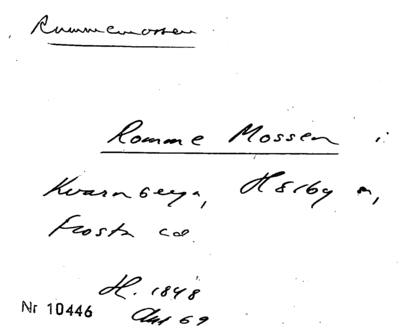 Rummemossen
Romme Mossen i
Kvarnberga, Hörby s,
Frosta
H. 1848
Nr 10446
69